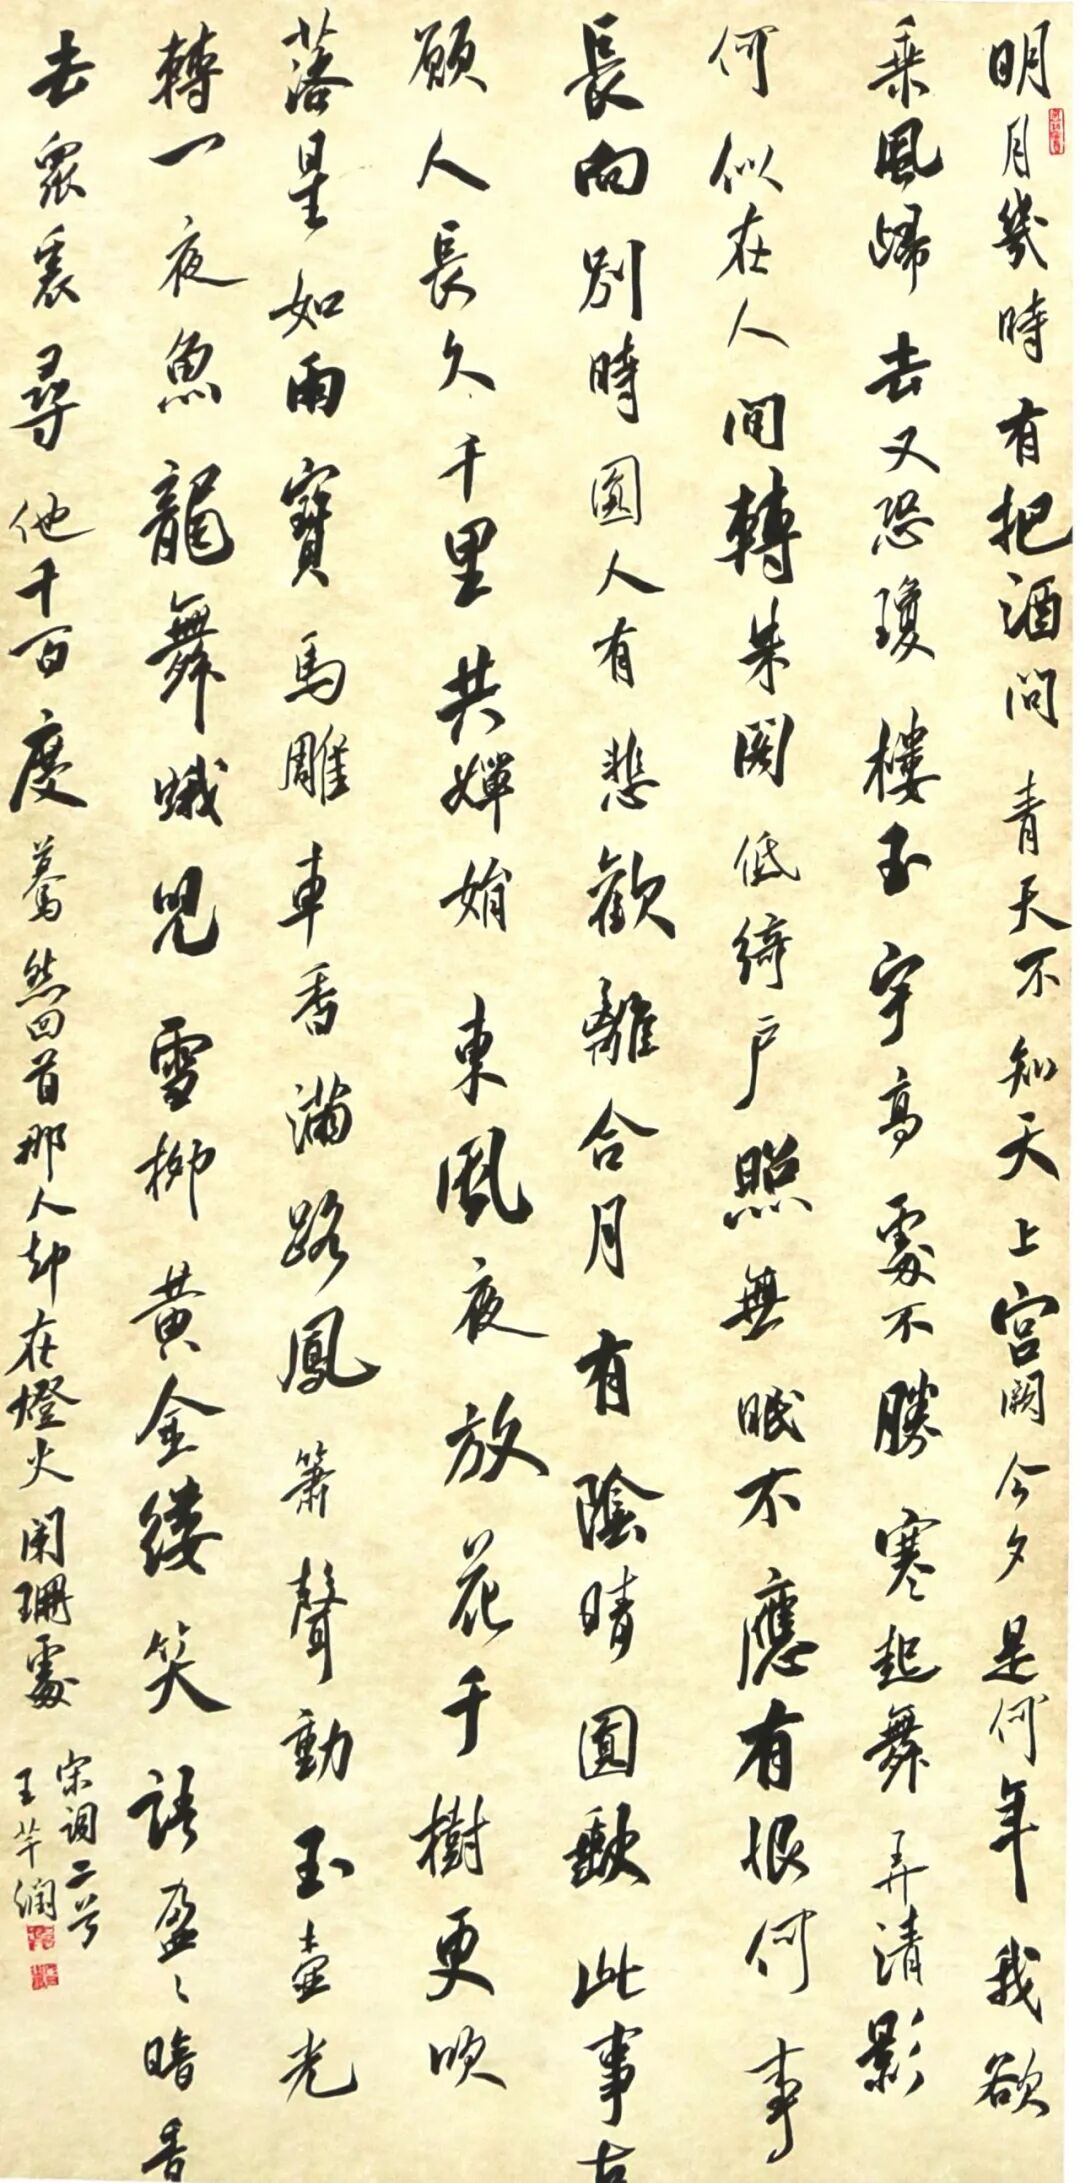 明月幾時有把酒問青天不知天上宮闕今夕是何年我欲
乘風歸去又恐瓊樓玉宇高處不勝寒起舞弄清影
何似在人間轉朱閣低綺戶照無眠不應有恨何事
長向別時圓人有悲歡離合月有陰晴圓缺此事古
願人長久千里共嬋娟東風夜放花千樹更吹
落星如雨寶馬雕車香滿路鳳簫聲動玉壺光
轉一夜魚龍舞蛾兒雪柳黃金縷笑語盈〻暗香
去眾裏尋他千百度驀然回首那人却在燈火闌珊處
宋詞二首
王芊潤